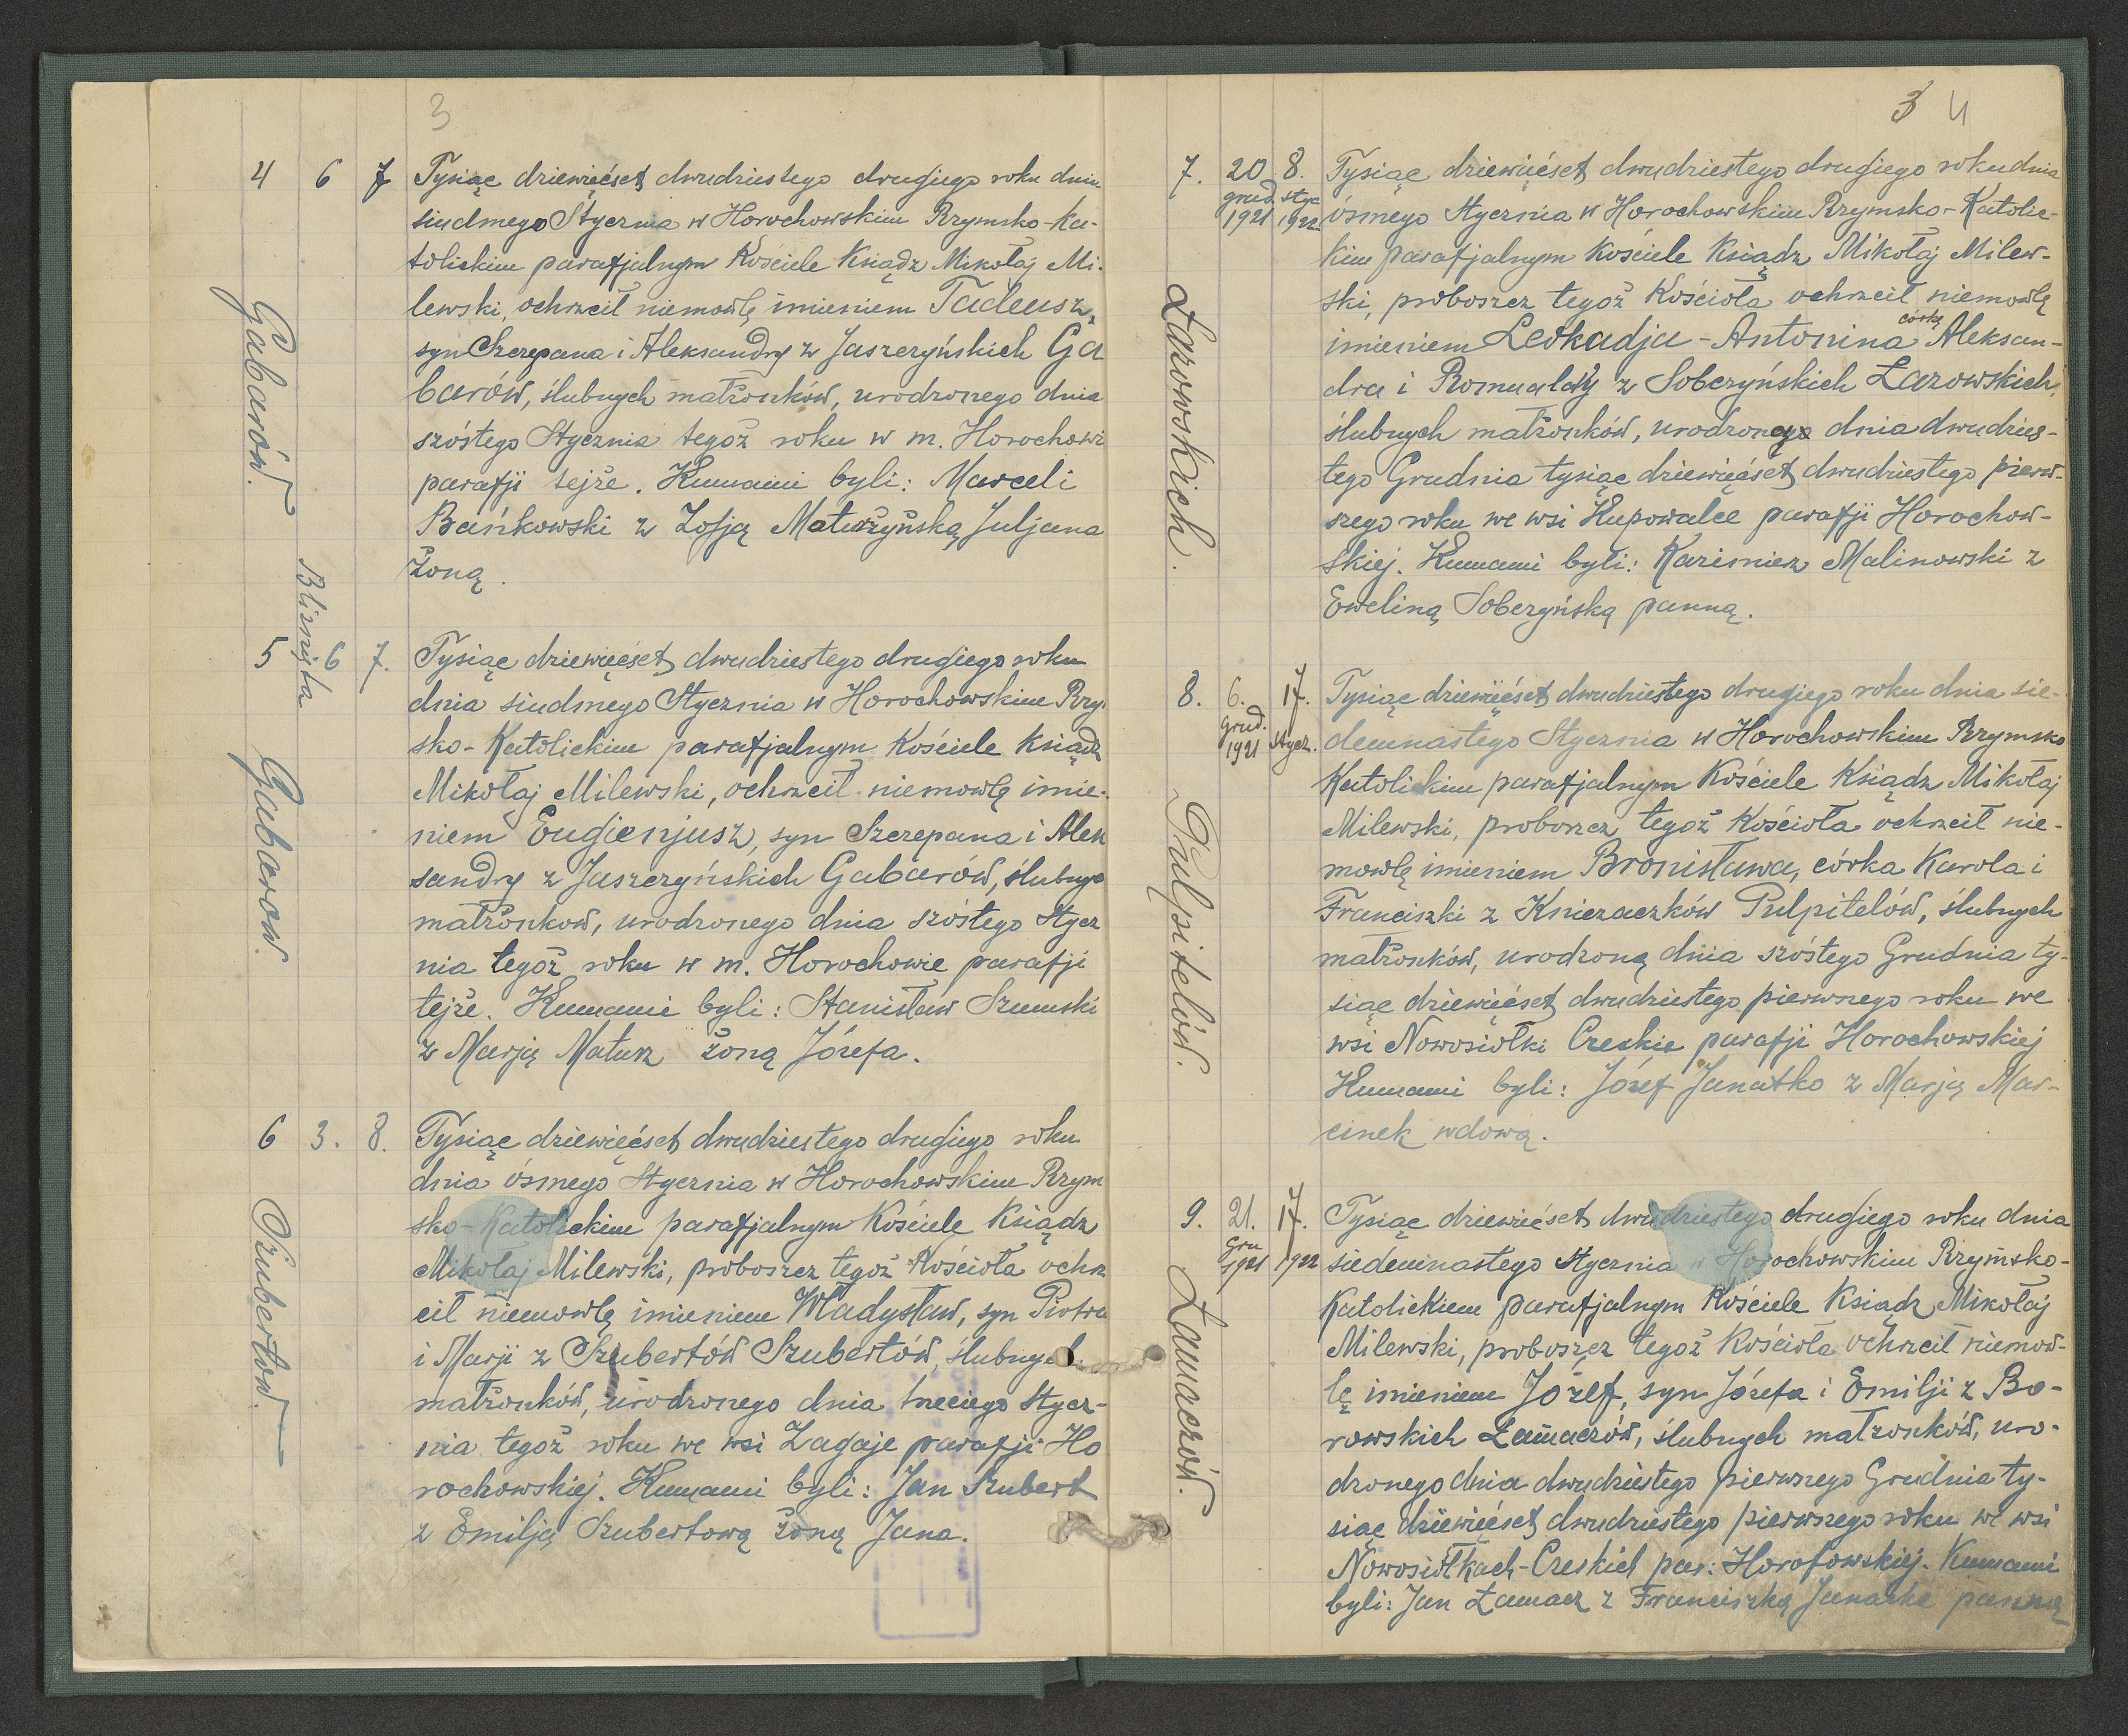 3
4 6 7 Tysiąc dziewięćset dwudziestego drugiego roku dnia
siudmego Stycznia w Horochowskim Rzymsko-Ka-
tolickim parafjalnym Kościele Ksiądz Mikołaj Mi-
lewski, ochrzcił niemowlę imieniem Tadeusz,
syn Szczepana i Aleksandry z Jaszczyńskich Ga
barów, ślubnych małżonków, urodzonego dnia
szóstego Stycznia tegoż roku w m. Horochowi
parafji tejże. Kumami byli: Marceli
Bańkowski z Zofją Matuszyńską Juljana
żoną.
Gabarów.
Bliźnięta
5 6 7. Tysiąc dziewięćset dwudziestego drugiego roku
dnia siudmego Stycznia w Horochowskim Rzy
sko-Katolickim parafjalnym Kościele Ksiądz
Mikołaj Milewski, ochrzcił niemowlę imie-
niem Eugienjusz, syn Szczepana i Alek
sandry z Jaszczyńskich Gabarów, ślubnyc
małżonkow, urodzonego dnia szóstego Stycz
nia tegoż roku w m. Horochowie parafji
tejże. Kumami byli: Stanisław Szumski
z Marją Matusz żoną Józefa.
Gabarow.
6 3. 8. Tysiąc dziewięćset dwudziestego drugiego roku
dnia ósmego Stycznia w Horochowskim Rzym
sko-Katolickim parafjalnym Kościele Ksiądz
Mikołaj Milewski, proboszcz tegoż Kościoła ochrz
cił niemowlę imieniem Władysław, syn Piotra
i Marji z Szubertów Szubertów, ślubnych
małżonków, urodzonego dnia trzeciego Stycz-
nia tegoż roku we wsi Zagaje parafji Ho
rochowskiej. Kumami byli: Jan Szubert
z Emilją Szubertową żoną Jana.
Szubertow.
3 4
7. 20 8. Tysiąc dziewięćset dwudziestego drugiego roku dnia
grud. stycz 1921 1922. ósmego Stycznia w Horochowskim Rzymsko-Katolic-
kim parafjalnym Kościele Ksiądz Mikołaj Milew-
ski, proboszcz tegoż Kościoła ochrzcił niemowlę
imieniem Leokadja-Antonina córkę Aleksan-
dra i Romualdy z Sobczyńskich Łazowskich,
ślubnych małżonków, urodzoną dnia dwudzies-
tego Grudnia tysiąc dziewięćset dwudziestego pierw-
szego roku we wsi Kupowalce parafji Horochow-
skiej. Kumami byli: Kazimierz Malinowski z
Eweliną Sobczyńską panną.
Łazowskich.
8. 6. 17. Tysiąc dziewięćset dwudziestego drugiego roku dnia sie-
grud. 1921 stycz. demnastego Stycznia w Horochowskim Rzymsko
Katolickim parafjalnym Kościele Ksiądz Mikołaj
Milewski, proboszcz tegoż Kościoła ochrzcił nie-
mowlę imieniem Bronisława, córka Karola i
Franciszki z Kniezaczków Pulpitelów, ślubnych
małżonków, urodzoną dnia szóstego Grudnia ty-
siąc dziewięćset dwudziestego pierwnego roku we
wsi Nowosiołki Czeskie parafji Horochowskiej
Kumami byli: Józef Janatko z Marją Mar-
cinek wdową.
Pulpitelów.
9. 21. 17. Tysiąc dziewięćset dwudziestego drugiego roku dnia
Gru 1921 1922 siedemnastego Stycznia w Horochowskim Rzymsko-
Katolickiem parafjalnym Kościele Ksiądz Mikołaj
Milewski, proboszcz tegoż Kościoła ochrzcił niemow-
lę imieniem Józef, syn Józefa i Emilji z Bo-
rowskich Łamaczów, ślubnych małżonków, uro-
dzonego dnia dwudziestego pierwszego Grudnia ty-
siąc dziewięćset dwudziestego pierwszego roku we wsi
Nowosiołkach-Czeskich par: Horofowskiej. Kumami
byli: Jan Łamacz z Franciszką Janatka panną
Łamaczów.